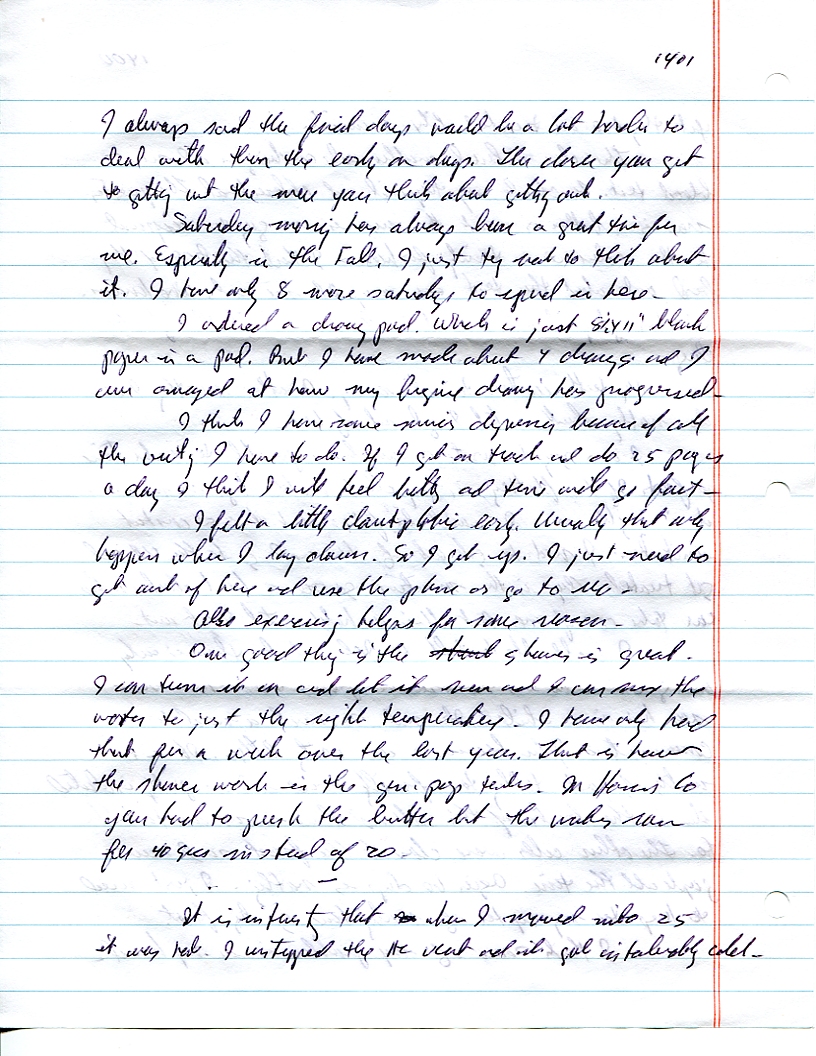 1401
I always said the final days would be a lot harder to
deal with then the early on days. The closer you get
to getting out the more you think about getting out.
Saturday morning has always been a great time for
me. Especially in the Fall. I just try not to think about
it. I have only 8 more saturdays to spend in here -
I ordered a drawing pad. Which is just 8½x11" blank
paper in a pad. But I have made about 4 drawings and I
am amazed at how my drawing has progressed -
I think I have some depression because of all
the writing I have to do. If I get on track and do 25 pages
a day I think I will feel better and time will go fast -
I felt a little claustrophobic early. Usually that only
happens when I lay down. So I get up. I just need to
get out of here and use the phone or go to
Also exercising helps for some reason -
One good thing is the shower is great.
I can turn it on and let it run and I can mix the
water to just the right temperature. I have only had
that for a week over the last year. That is how
the shower work in the gen. pop tanks. In Harris Co
you had to push the button but the water ran
for 40 secs instead of 20 -
It is that when I moved into 25
it was hot. I unstopped the AC vent and it got intolerably cold -